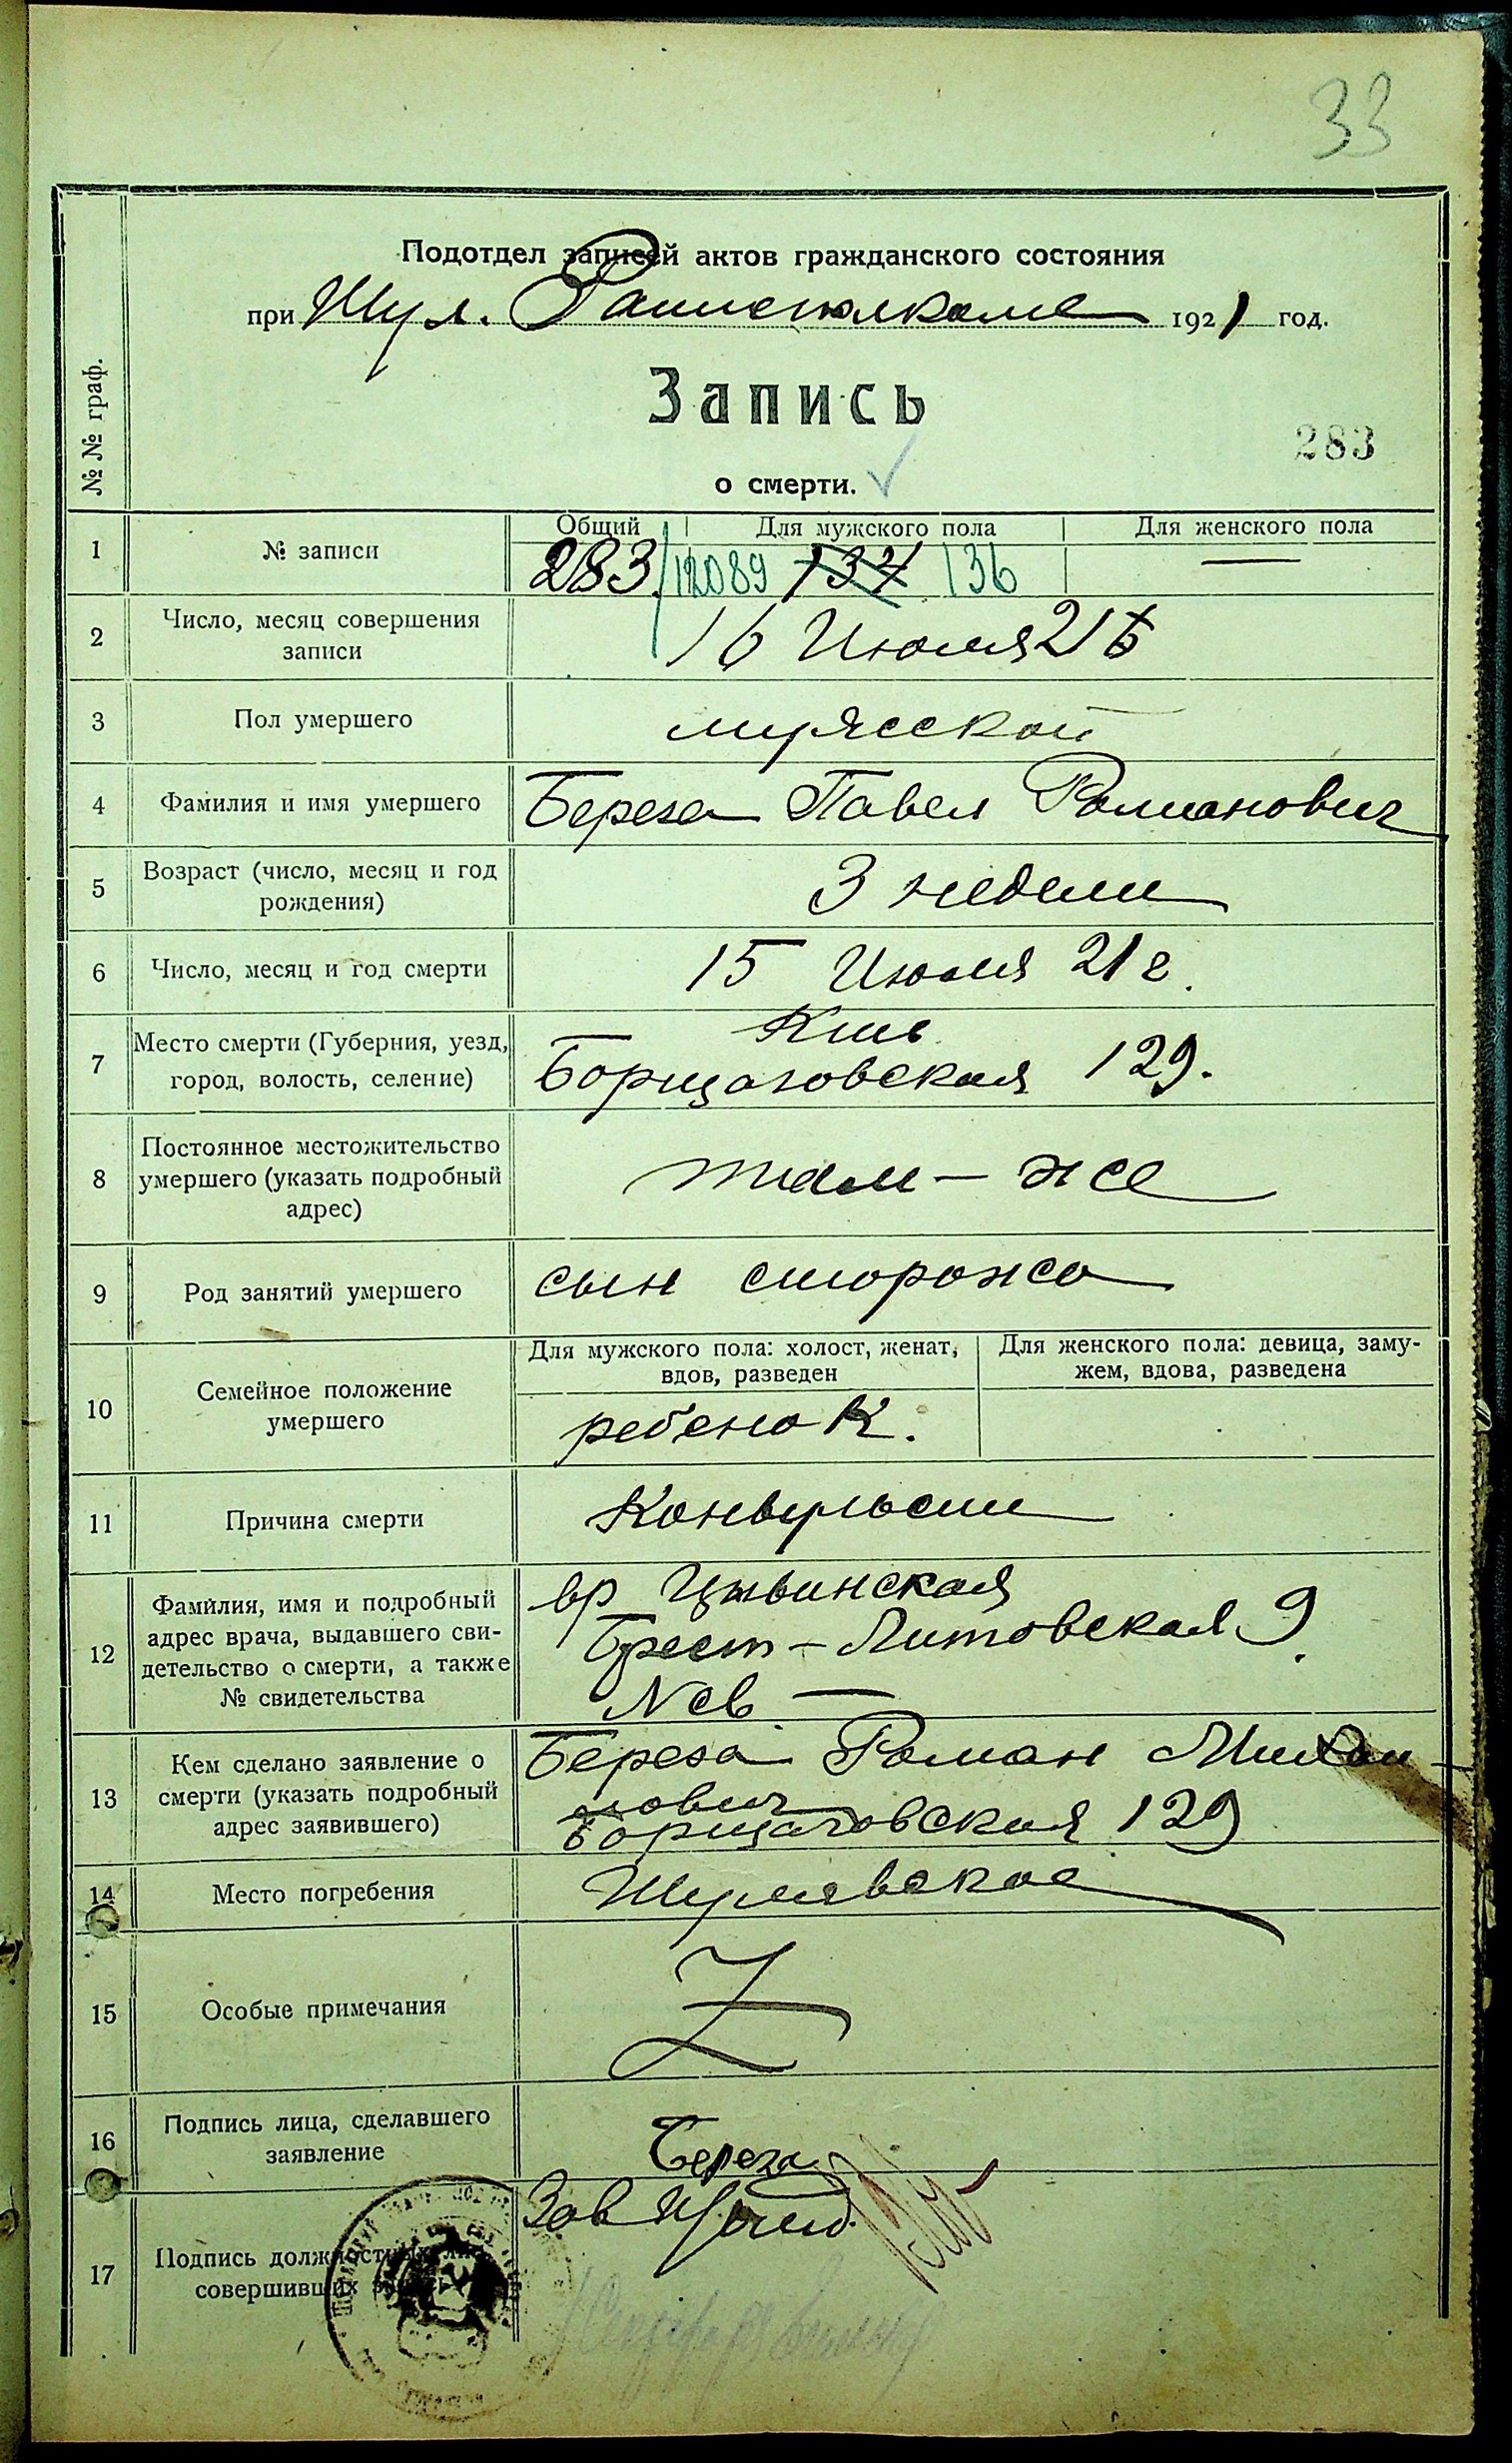 33
Подотдел записей актов гражданского состояния
при Шул. Райисполкоме 1921 год.
Запись
283
о смерти.
№ № граф.
Общий Для мужского пола Для женского пола
1 № записи 283/12089 134 136 —
2 Число, месяц совершения
записи
16 Июля 21
3 Пол умершего мужской
4 Фамилия и имя умершего Береза Павел Романович
5 Возраст (число, месяц и год
рождения)
3 недели
6 Число, месяц и год смерти 15 Июля 21 г.
7 Место смерти (Губерния, уезд,
город, волость, селение)
Киев
Борщаговская 129.
8 Постоянное местожительство
умершего (указать подробный
адрес)
там - же
9 Род занятий умершего сын сторожа
10 Семейное положение
умершего
Для мужского пола: холост, женат,
вдов, разведен
Для женского пола: девица, заму-
жем, вдова, разведена
ребенок.
11 Причина смерти Конвульсии
12 Фамилия, имя и подробный
адрес врача, выдавшего сви-
детельство о смерти, а также
№ свидетельства
вр
Брест - Литовская 9.
N св —
13 Кем сделано заявление о
смерти (указать подробный
адрес заявившего)
Береза Роман Михай-
лович
Борщаговская 129
14 Место погребения Шулявское
15 Особые примечания
16 Подпись лица, сделавшего
заявление
Береза
17 Подпись должностных лиц,
совершивших
Зав